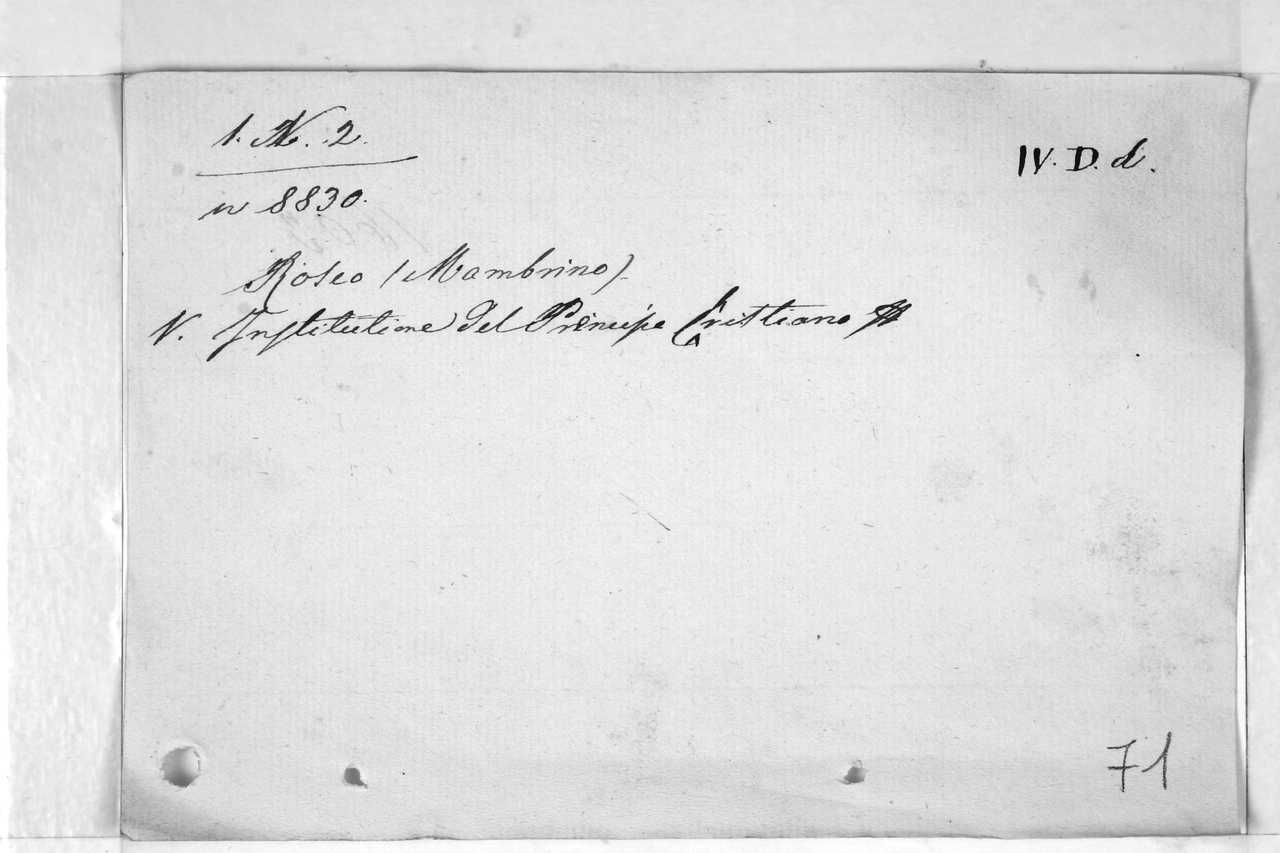 1. N. 2.
IV. D. d.
n 8830.
Roseo (Mambrino)
V. Institutione del Principe Cristiano
71